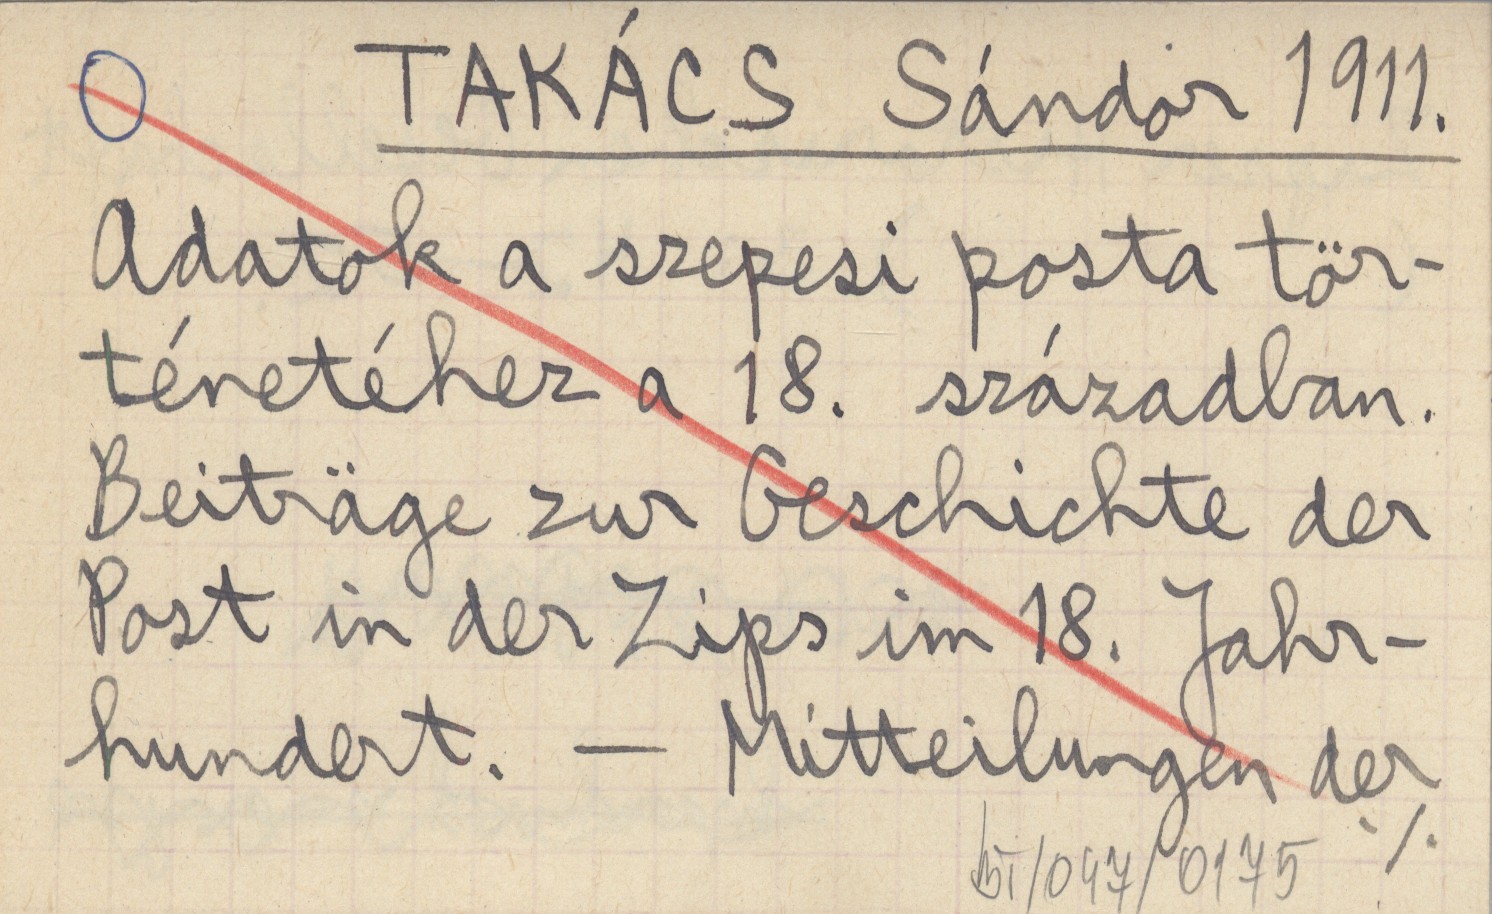 TAKÁCS Sándor 1911.
Adatok a szepesi posta tör-
ténetéhez a 18. században.
Beiträge zur Geschichte der
Post in der Zips im 18. Jahr-
hundert. — Mitteilungen der
./.
/047/0175